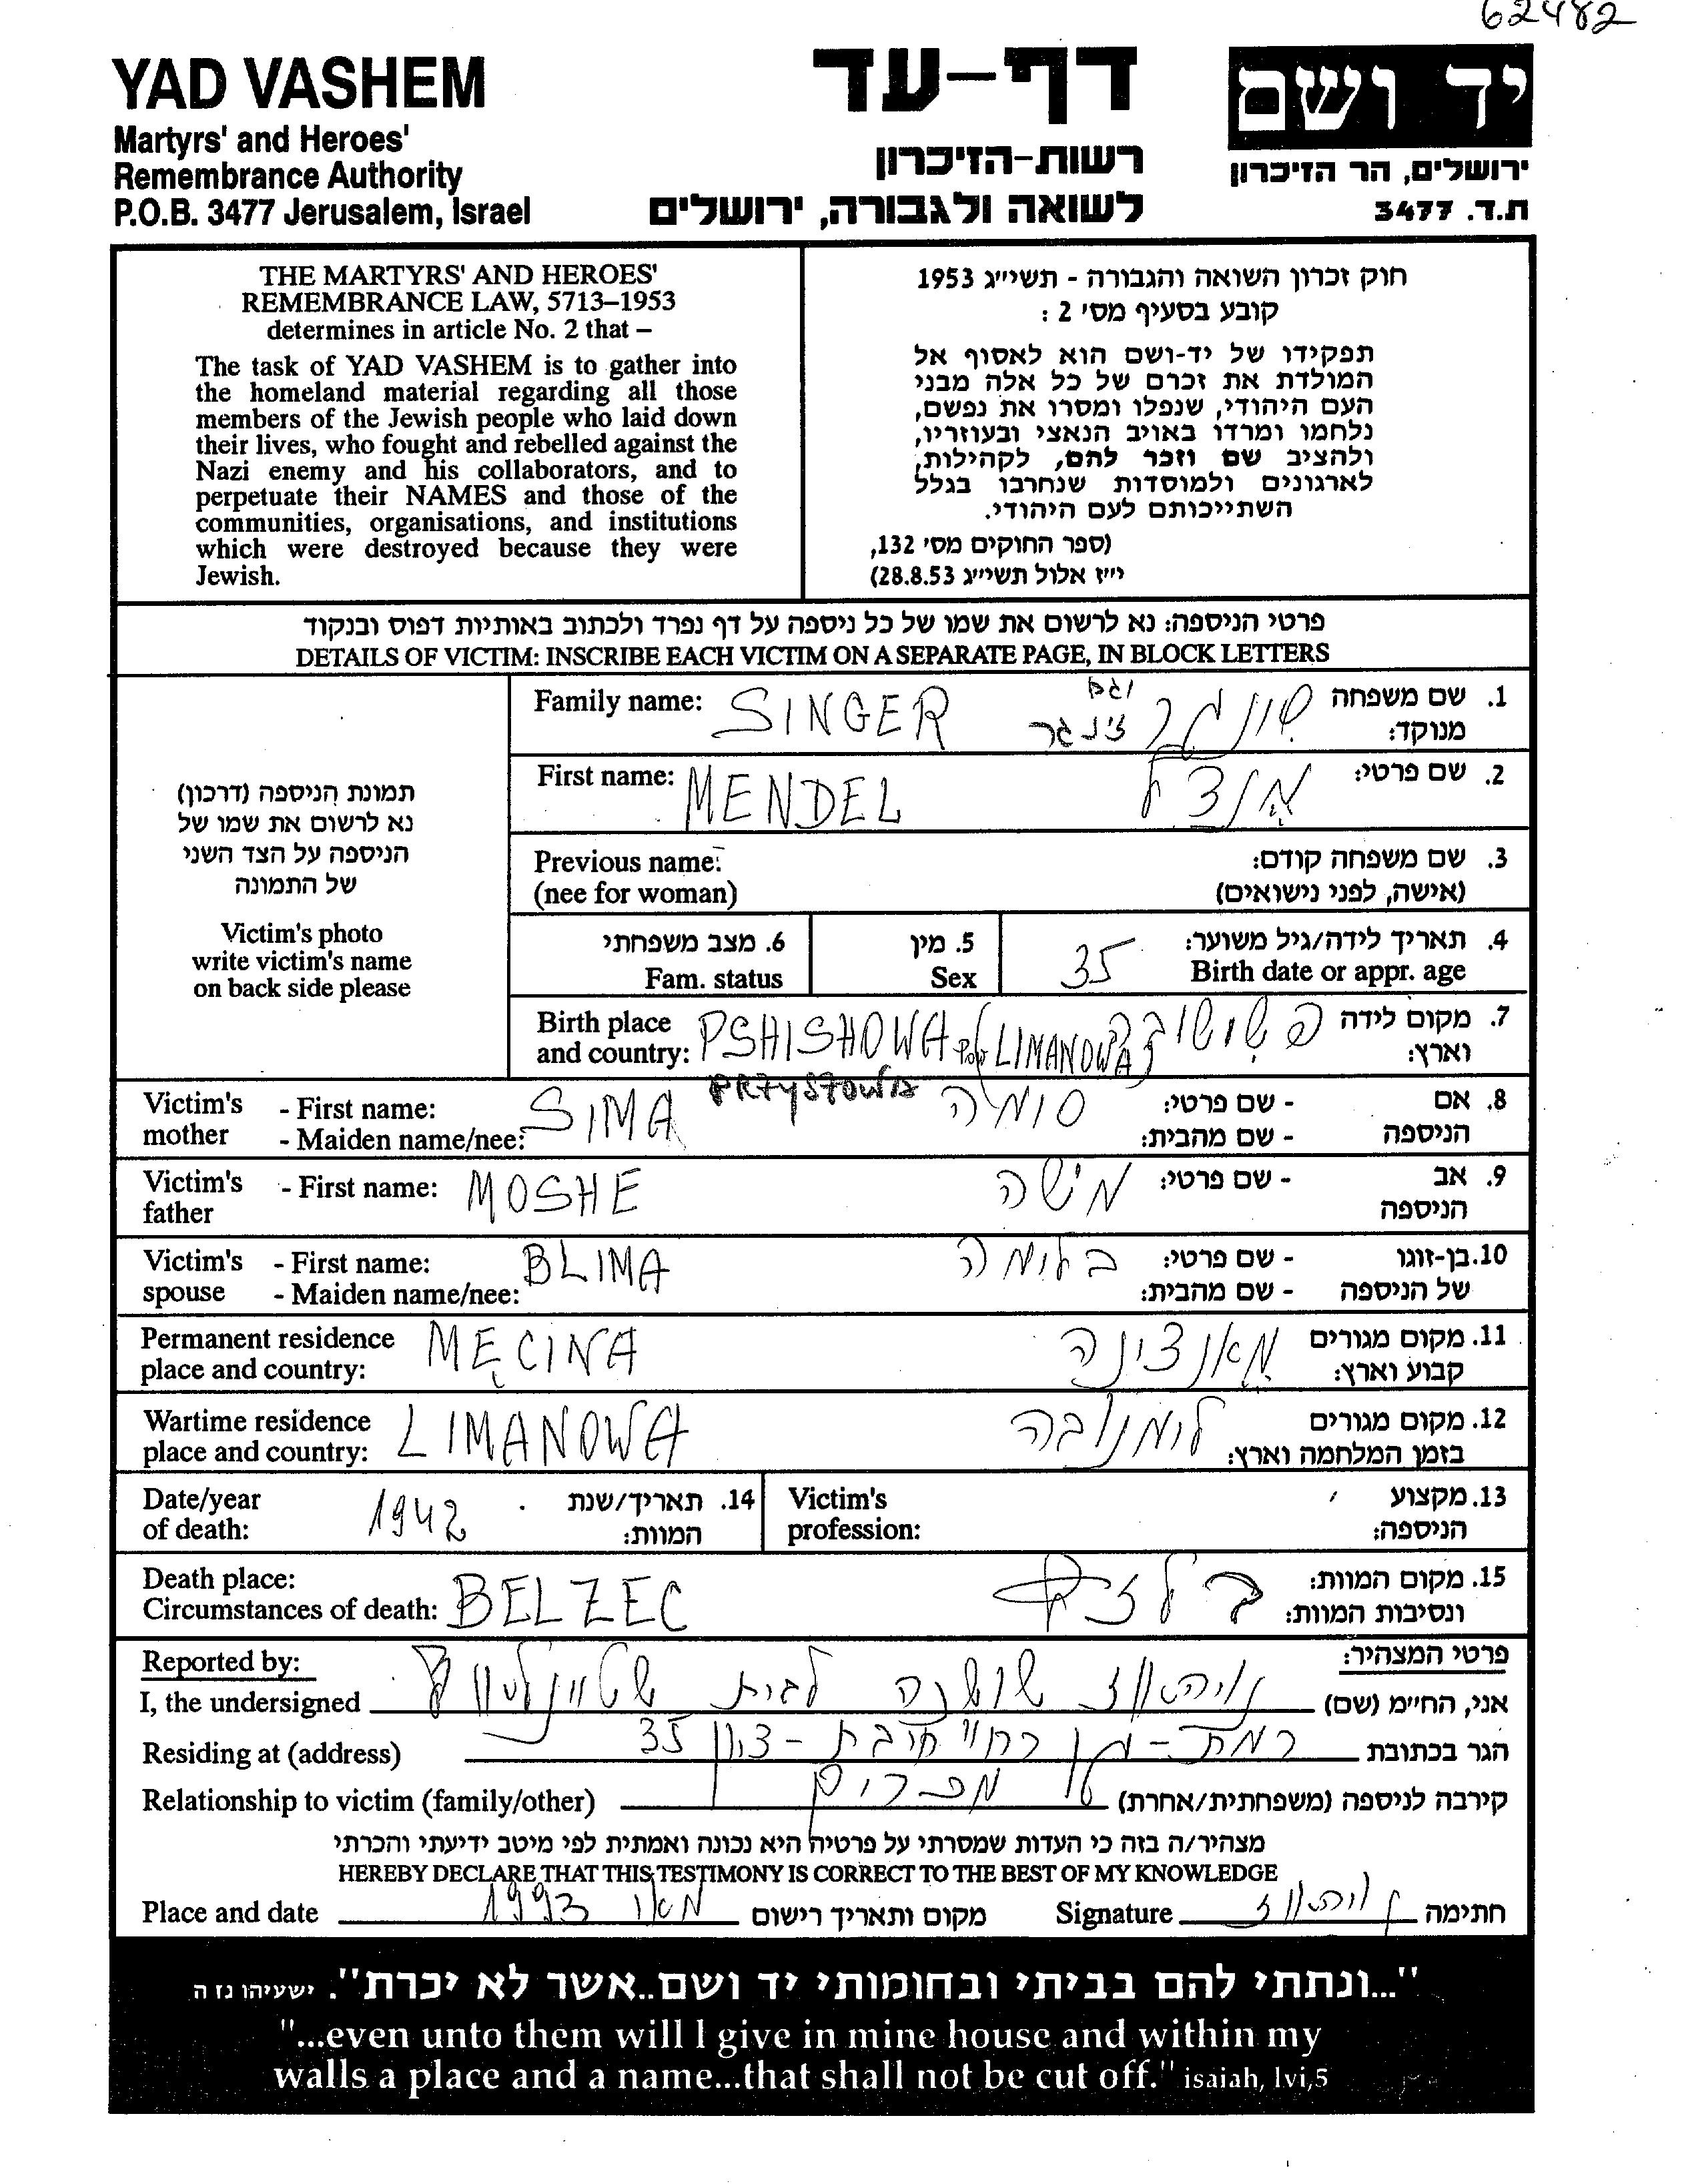 62482
YAD VASHEM
Martyrs' and Heroes'
Remembrance Authority
P.O.B. 3477 Jerusalem, Israel
דף-עד
רשות-הזיכרון
לשואה ולגבורה, ירושלים
יד ושם
ירושלים, הר הזיכרון
ת.ד. 3477
THE MARTYRS' AND HEROES'
REMEMBRANCE LAW, 5713–1953
determines in article No. 2 that –
The task of YAD VASHEM is to gather into
the homeland material regarding all those
members of the Jewish people who laid down
their lives, who fought and rebelled against the
Nazi enemy and his collaborators, and to
perpetuate their NAMES and those of the
communities, organisations, and institutions
which were destroyed because they were
Jewish.
חוק זכרון השואה והגבורה - תשי״ג 1953
קובע בסעיף מס׳ 2 :
תפקידו של יד-ושם הוא לאסוף אל
המולדת את זכרם של כל אלה מבני
העם היהודי, שנפלו ומסרו את נפשם,
נלחמו ומרדו באויב הנאצי ובעוזריו,
ולהציב שם וזכר להם, לקהילות,
לארגונים ולמוסדות שנחרבו בגלל
השתייכותם לעם היהודי.
(ספר החוקים מס׳ 132,
י״ז אלול תשי״ג 28.8.53)
פרטי הניספה: נא לרשום את שמו של כל ניספה על דף נפרד ולכתוב באותיות דפוס ובנקוד
DETAILS OF VICTIM: INSCRIBE EACH VICTIM ON A SEPARATE PAGE, IN BLOCK LETTERS
תמונת הניספה (דרכון)
נא לרשום את שמו של
הניספה על הצד השני
של התמונה
Victim's photo
write victim's name
on back side please
Family name: SINGER זינגר וגם זינגר 1. שם משפחה
מנוקד:
First name: MENDEL מנדל 2. שם פרטי:
Previous name: 3. שם משפחה קודם:
(nee for woman) (אישה, לפני נישואים)
6. מצב משפחתי 5. מין 35 4. תאריך לידה/גיל משוער:
Fam. status Sex Birth date or appr. age
Birth place PSHISHOWA pow LIMANOWA פשישובה 7. מקום לידה
and country: וארץ:
PRZYSZOWA
Victim's - First name: SIMA סימה - שם פרטי: 8. אם
mother - Maiden name/nee: - שם מהבית: הניספה
Victim's - First name: MOSHE משה - שם פרטי: 9. אב
father הניספה
Victim's - First name: BLIMA בלימה - שם פרטי: 10. בן-זוגו
spouse - Maiden name/nee: - שם מהבית: של הניספה
Permanent residence MĘCINA מאנצינה 11. מקום מגורים
place and country: קבוע וארץ:
Wartime residence LIMANOWA לימנובה 12. מקום מגורים
place and country: בזמן המלחמה וארץ:
Date/year 1942 14. תאריך/שנת Victim's 13. מקצוע
of death: המוות: profession: הניספה:
Death place: BELZEC בלזץ 15. מקום המוות:
Circumstances of death: ונסיבות המוות:
Reported by: פרטי המצהיר:
I, the undersigned שושנה לבית אני, החי״מ (שם)
Residing at (address) רמת-גן רח׳ חיבת-ציון 35 הגר בכתובת
Relationship to victim (family/other) מכרים קירבה לניספה (משפחתית/אחרת)
מצהיר/ה בזה כי העדות שמסרתי על פרטיה היא נכונה ואמתית לפי מיטב ידיעתי והכרתי
HEREBY DECLARE THAT THIS TESTIMONY IS CORRECT TO THE BEST OF MY KNOWLEDGE
Place and date מאי 1993 מקום ותאריך רישום Signature חתימה
"...ונתתי להם בביתי ובחומותי יד ושם..אשר לא יכרת". ישעיהו נו ה
"...even unto them will I give in mine house and within my
walls a place and a name...that shall not be cut off." isaiah, lvi,5